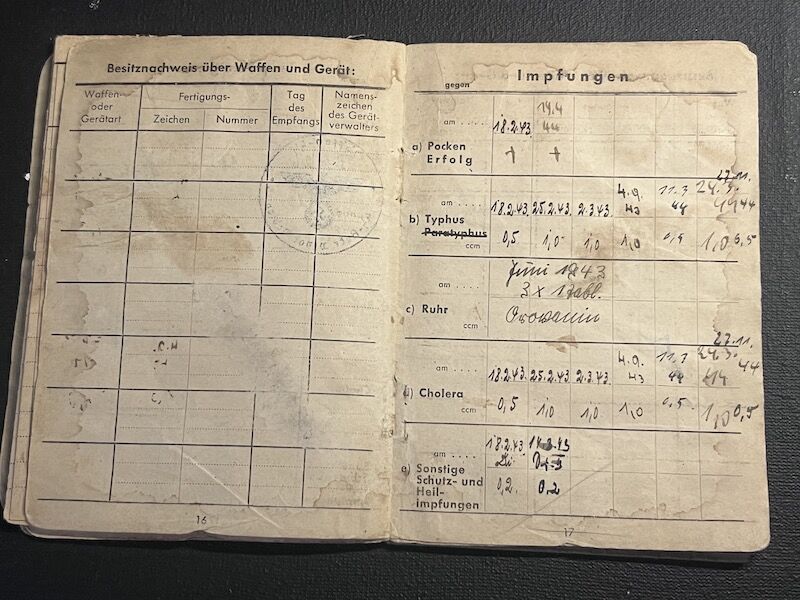 Besitznachweis über Waffen und Gerät:
Waffen- oder Gerätart
Fertigungs-
Zeichen
Nummer
Tag des Empfangs
Namens- zeichen des Gerät- verwalters
16
Impfungen
gegen
19.4
am . . . . 18.2.43. 44
a) Pocken
Erfolg + +
4.9. 11.3 24.3. 27.11.
am . . . . 18.2.43. 25.2.43. 2.3.43. 43 44 44 44
b) Typhus
Paratyphus
ccm 0,5 1,0 1,0 1,0 0,5 1,0 0,5
Juni 1943
am . . . . 3 x 1 Tabl.
c) Ruhr
ccm
4.9. 11.3 24.3. 27.11.
am . . . . 18.2.43. 25.2.43. 2.3.43. 43 44 44 44
d) Cholera
ccm 0,5 1,0 1,0 1,0 0,5 1,0 0,5
18.2.43.
am . . . .
e) Sonstige
Schutz- und 0,2. 0,2
Heil-
impfungen
17